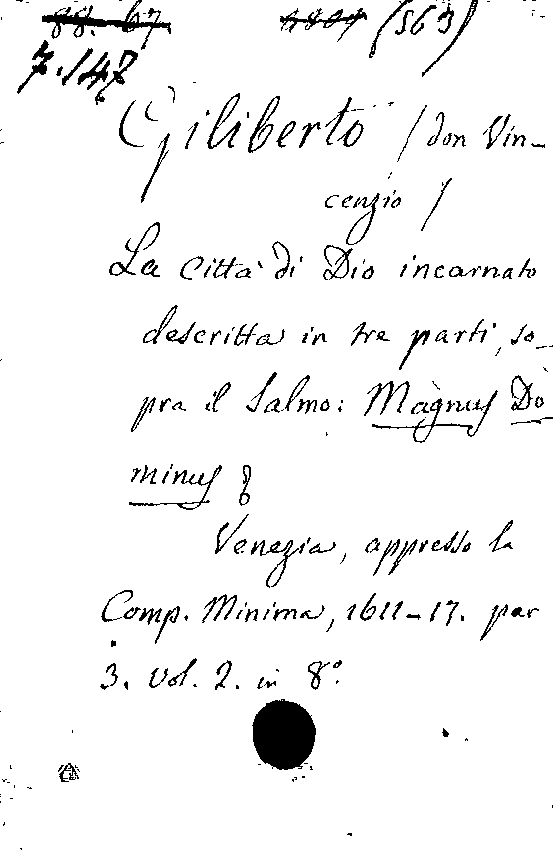 88. 67 (563)
7.147
Giliberto / don Vin-
cenzio /
La città di Dio incarnato
descritta in tre parti, so-
pra il Salmo: Magnus Do
minus &
Venezia, appresso la
Comp. Minima, 1611-17. par
3. vol. 2. in 8°.